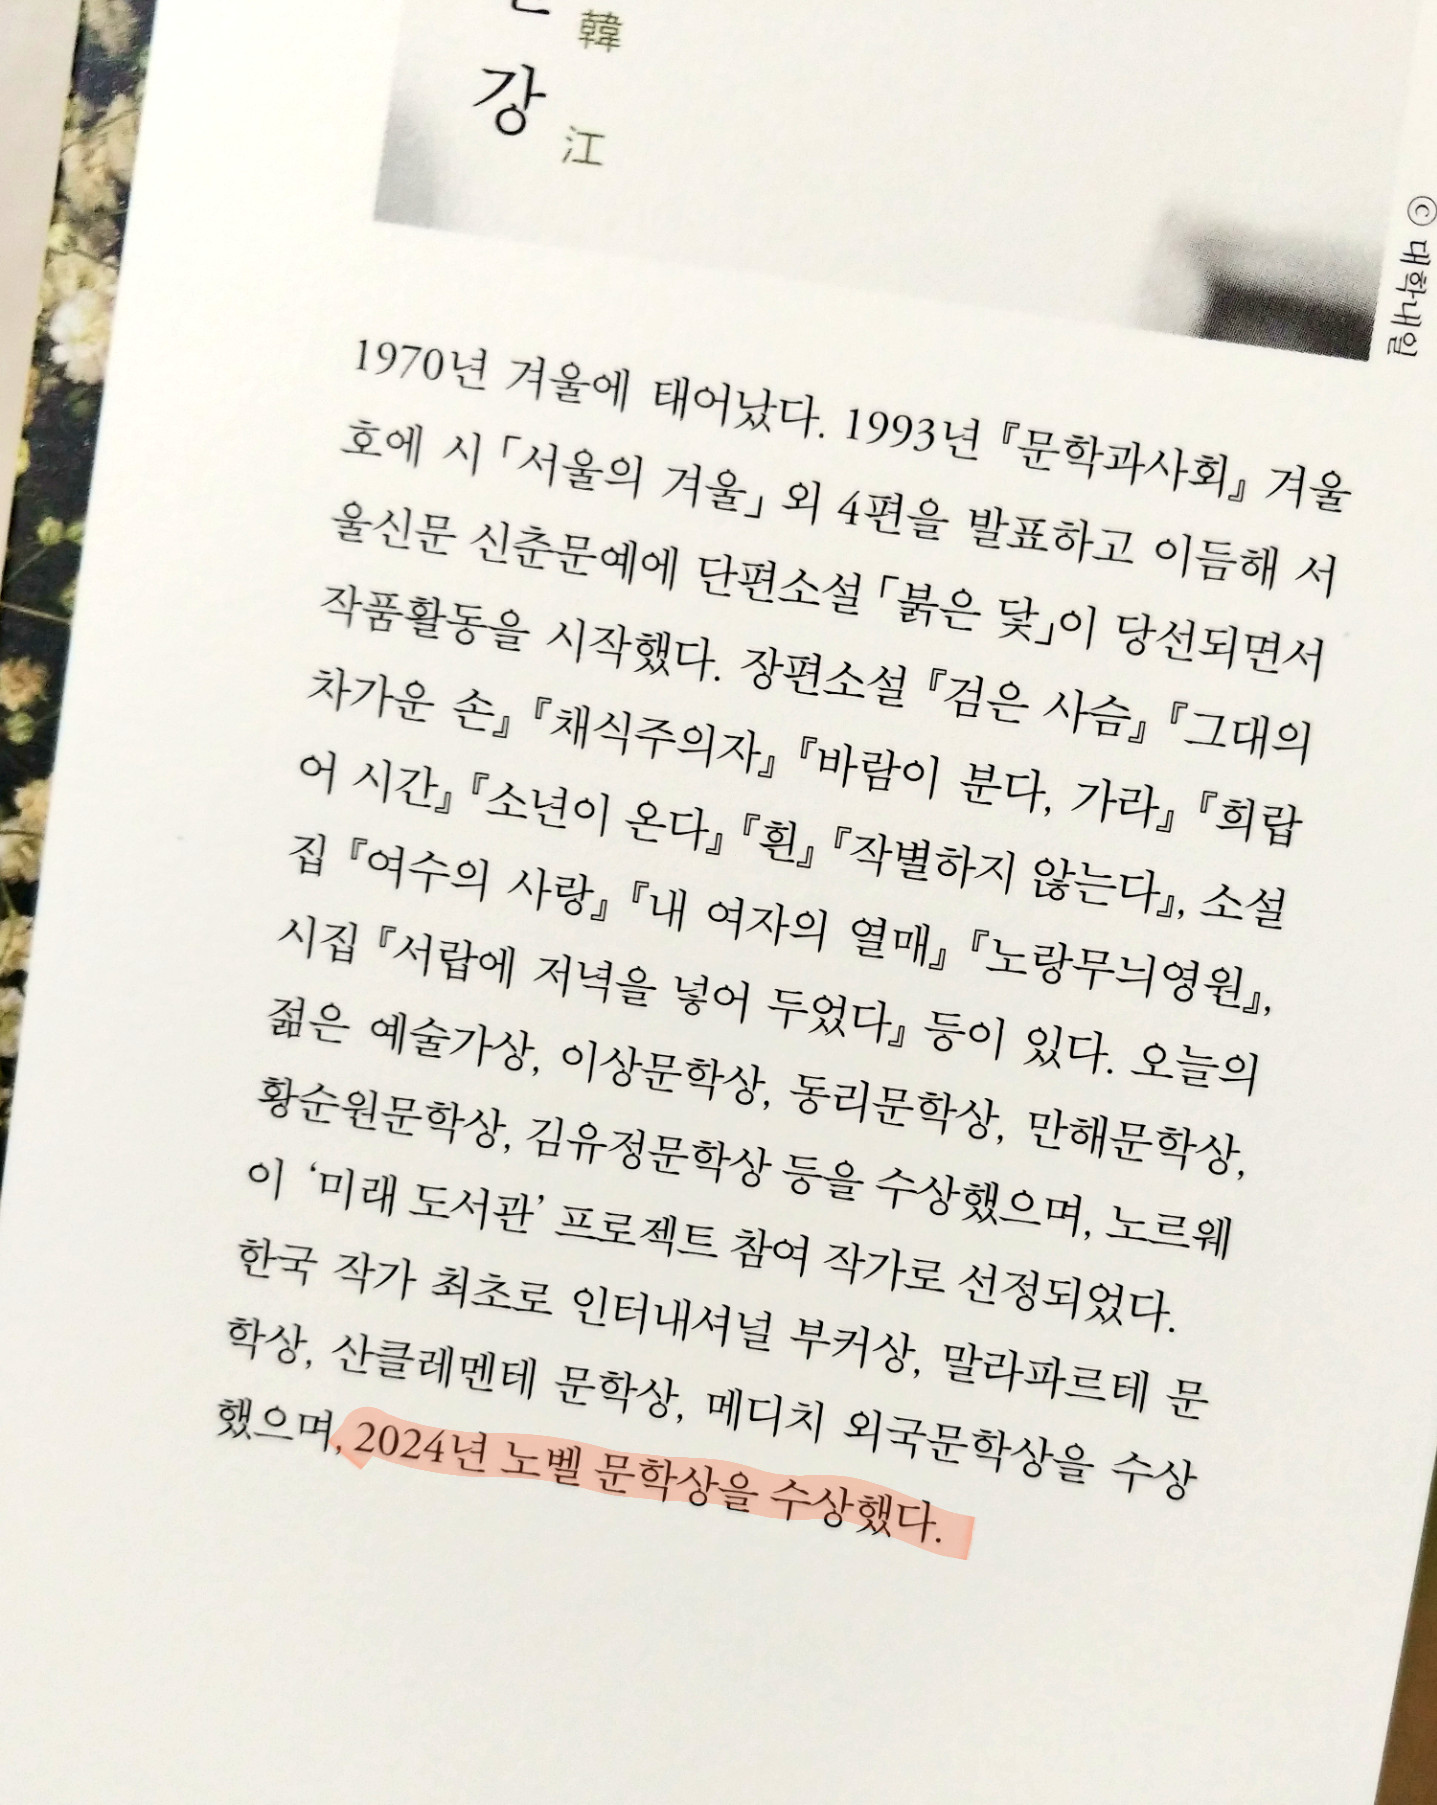 韓
강
江
ⓒ 대학내일
1970년 겨울에 태어났다. 1993년 『문학과사회』 겨울
호에 시 「서울의 겨울」 외 4편을 발표하고 이듬해 서
울신문 신춘문예에 단편소설 「붉은 닻」이 당선되면서
작품활동을 시작했다. 장편소설 『검은 사슴』 『그대의
차가운 손』 『채식주의자』 『바람이 분다, 가라』 『희랍
어 시간』 『소년이 온다』 『흰』 『작별하지 않는다』, 소설
집 『여수의 사랑』 『내 여자의 열매』 『노랑무늬영원』,
시집 『서랍에 저녁을 넣어 두었다』 등이 있다. 오늘의
젊은 예술가상, 이상문학상, 동리문학상, 만해문학상,
황순원문학상, 김유정문학상 등을 수상했으며, 노르웨
이 ‘미래 도서관’ 프로젝트 참여 작가로 선정되었다.
한국 작가 최초로 인터내셔널 부커상, 말라파르테 문
학상, 산클레멘테 문학상, 메디치 외국문학상을 수상
했으며, 2024년 노벨 문학상을 수상했다.